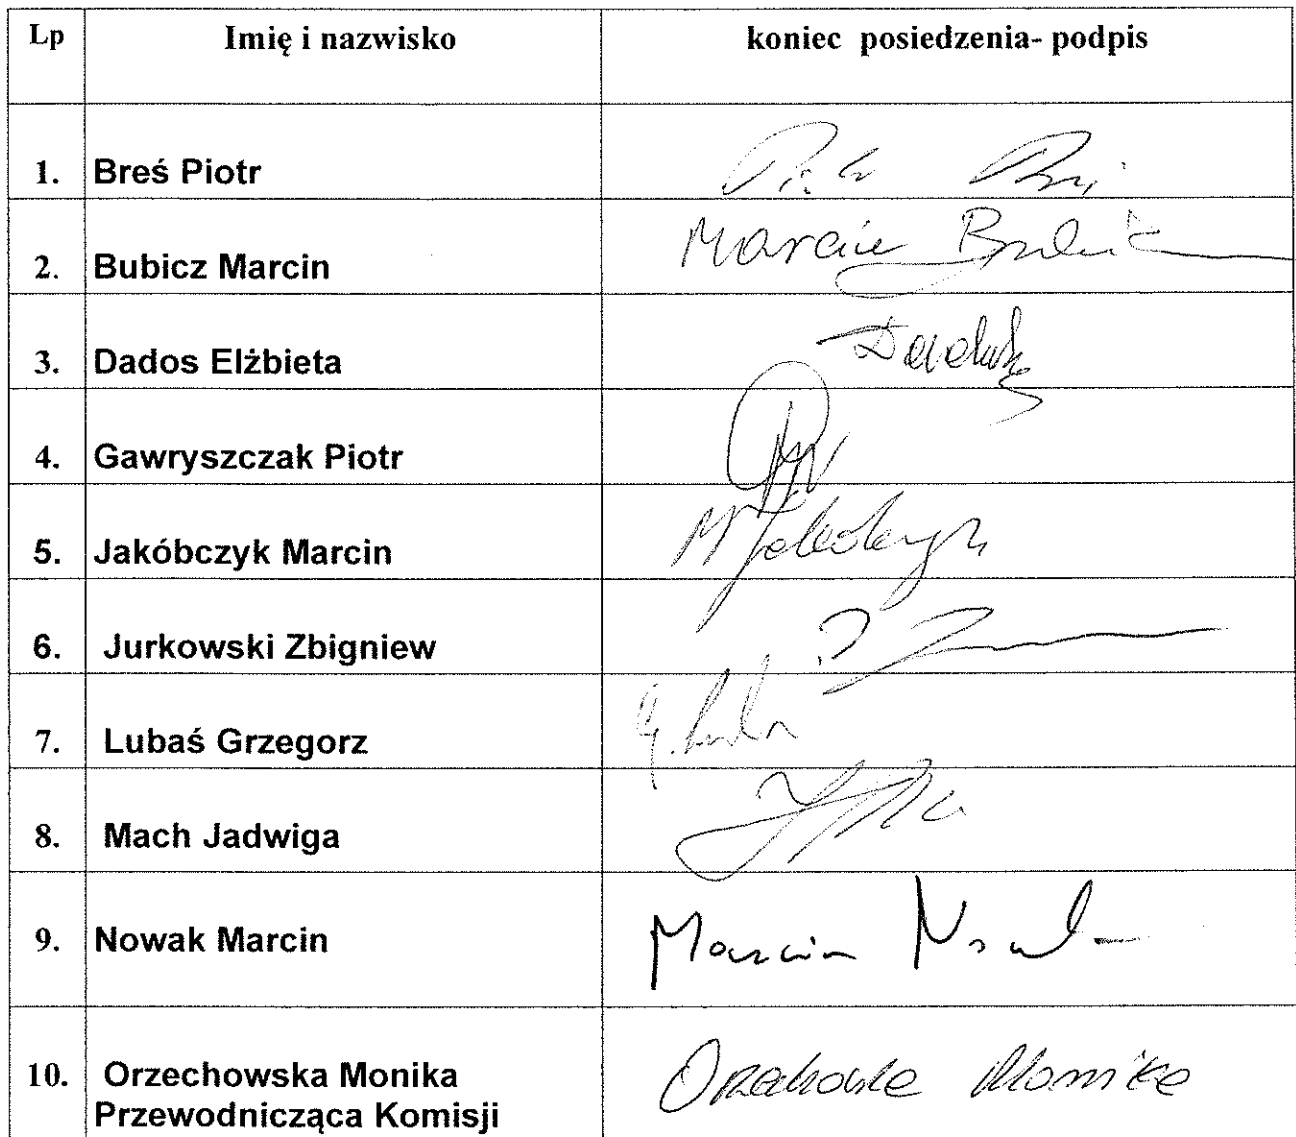 Lp Imię i nazwisko koniec posiedzenia- podpis
1. Breś Piotr
2. Bubicz Marcin Marcin Bubicz
3. Dados Elżbieta
4. Gawryszczak Piotr
5. Jakóbczyk Marcin M Jakóbczyk
6. Jurkowski Zbigniew
7. Lubaś Grzegorz
8. Mach Jadwiga
9. Nowak Marcin Marcin Nowak
10. Orzechowska Monika Orzechowska Monika
Przewodnicząca Komisji